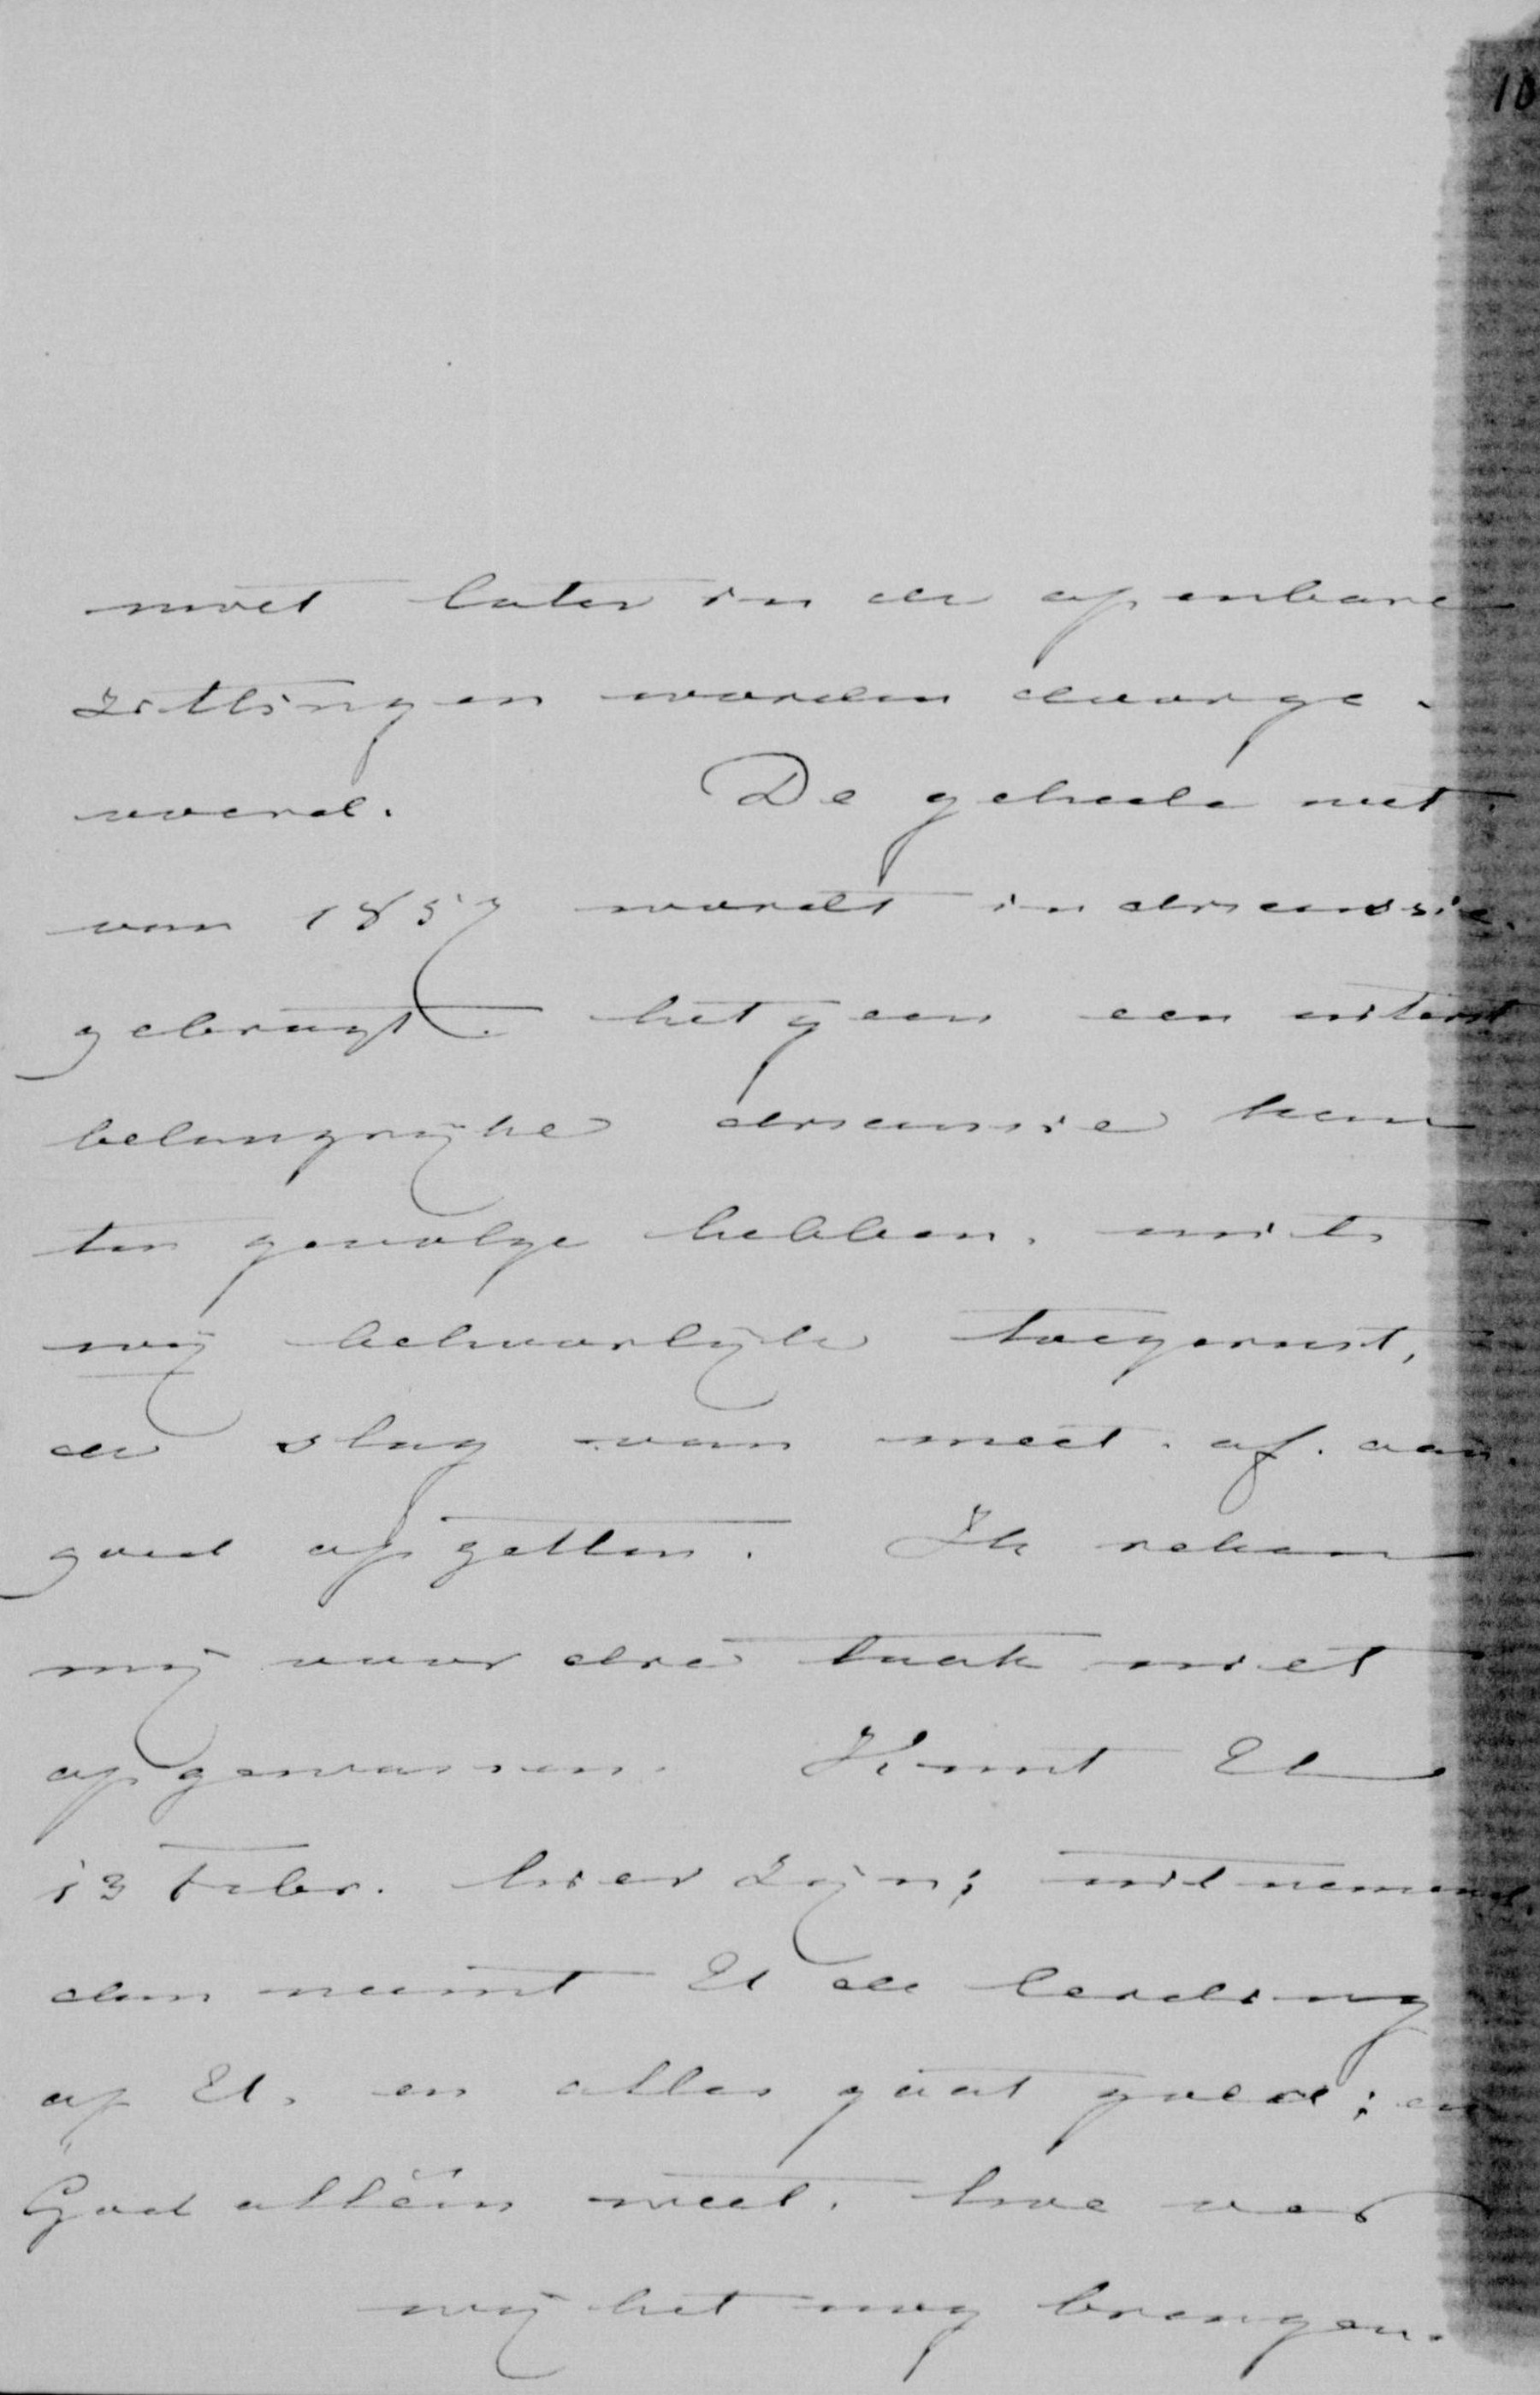 10
moet later in de openbare
zittingen worden doorge-
voerd. De geheele wet
van 1857 wordt in discussie
gebragt. hetgeen een uiterst
belangrijke discussie kan
ten gevolge hebben. mits
wij behoorlijk toegerust,
de slag van meet. af. aan
goed opzetten. Ik reken
mij voor die taak niet
opgewassen. Kunt U
13 Febr. hier zijn; uitnemend,
dan neemt U de leiding
op U. en alles gaat goed; en
God alléén weet. hoe ver
wij het nog brengen.